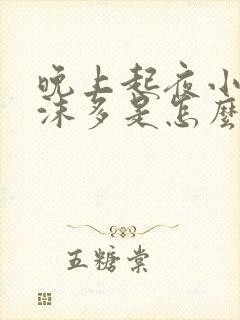 晚上起夜小
沫多是怎麼
五糖棠